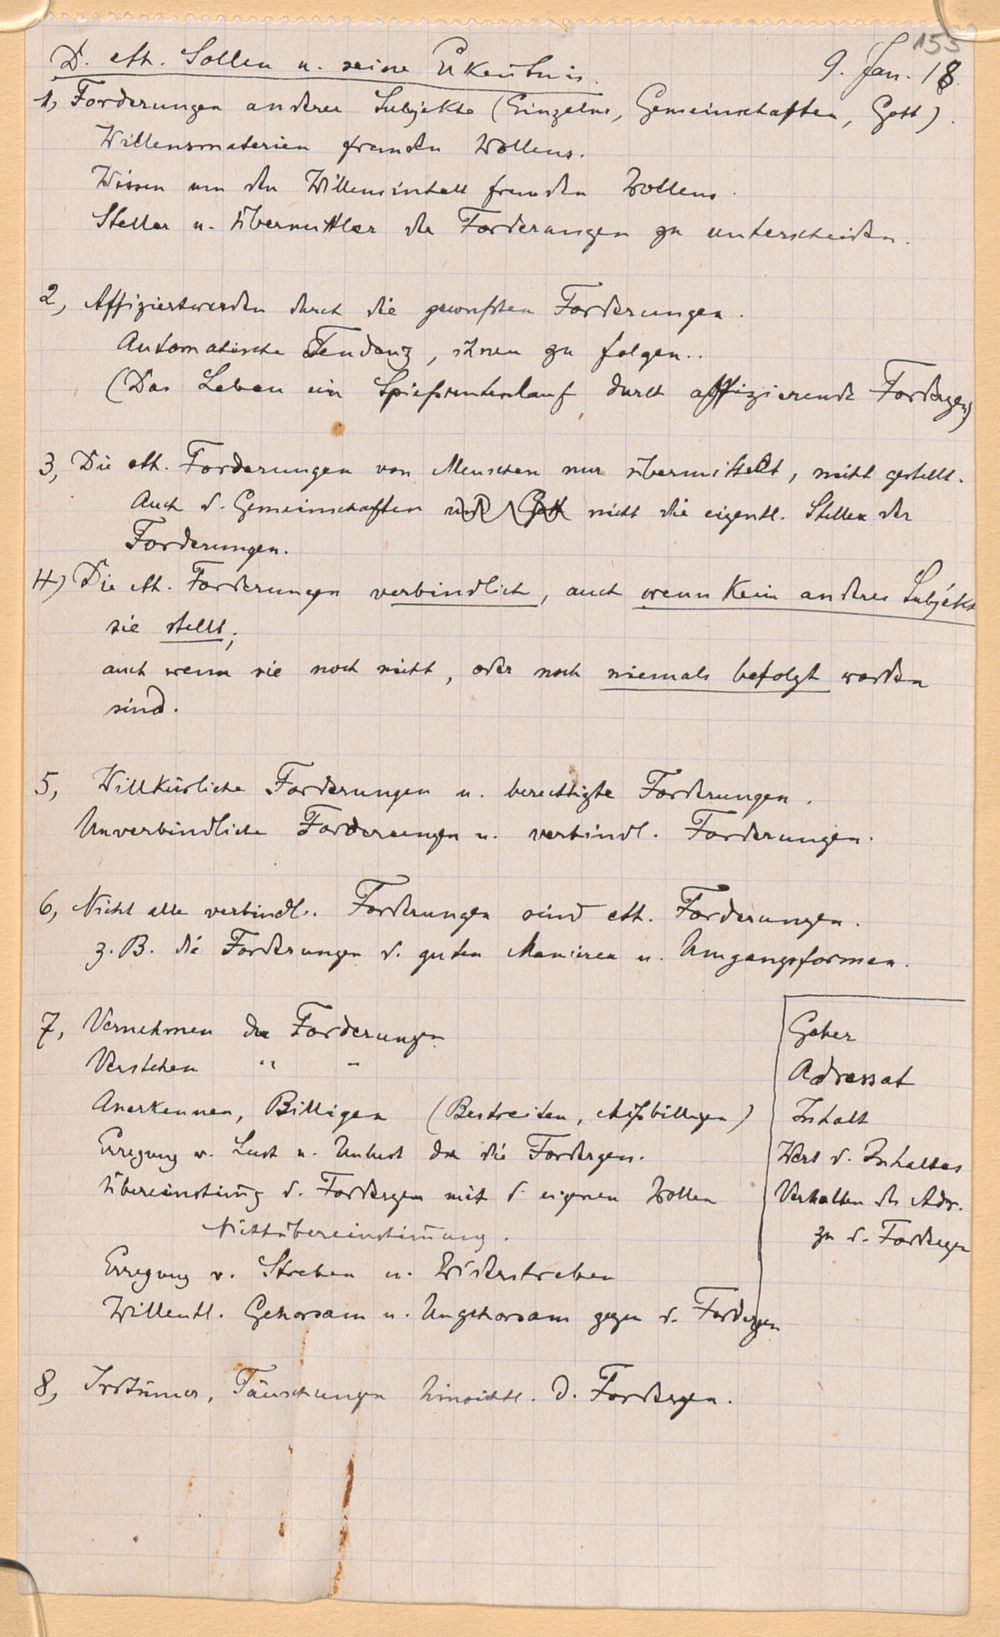 155
D. eth. Sollen u. seine Erkenntnis. 9. Jan. 18.
1, Forderungen anderer Subjekte (Einzelne, Gemeinschaften, Gott).
Willensmaterien fremden Wollens.
Wissen um den Willensinhalt fremden Wollens.
Steller u. Übermittler der Forderungen zu unterscheiden.
2, Affiziertwerden durch die gewussten Forderungen.
Automatische Tendenz, ihnen zu folgen..
(Das Leben ein Spießrutenlauf durch affizierende Fordergen)
3, Die eth. Forderungen von Menschen nur übermittelt, nicht gestellt.
Auch d. Gemeinschaften und Gott nicht die eigentl. Steller der
Forderungen.
4) Die eth. Forderungen verbindlich, auch wenn kein anderes Subjekt
sie stellt;
auch wenn sie noch nicht, oder noch niemals befolgt worden
sind.
5, Willkürliche Forderungen u. berechtigte Forderungen.
Unverbindliche Forderungen u. verbindl. Forderungen.
6, Nicht alle verbindl. Forderungen sind eth. Forderungen.
z. B. die Forderungen d. guten Manieren u. Umgangsformen.
7, Vernehmen der Forderungen
Verstehen " "
Anerkennen, Billigen (Bestreiten, Mißbilligen)
Erregung v. Lust u. Unlust dch die Fordergen.
Übereinstimg d. Fordergen mit d. eigenen Wollen
Nichtübereinstimung.
Erregung v. Streben u. Widerstreben
Willentl. Gehorsam u. Ungehorsam gegen d. Fordergen
Geber
Adressat
Inhalt
Wert d. Inhaltes
Verhalten des Adr.
zu d. Fordergen
8, Irrtümer, Täuschungen hinsichtl. d. Fordergen.